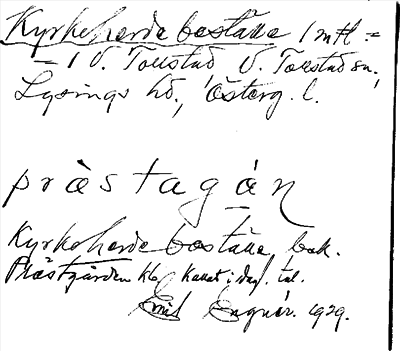 Kyrkoherdeboställe 1 mtl =
= 1 V. Tollstad V. Tollstad sn.,
Lysings hd., Österg. l.
pràstagán
Kyrkoherdeboställe, bok.
Prästgården kb kallat i dagl. tal.
Emil Engnér. 1929.